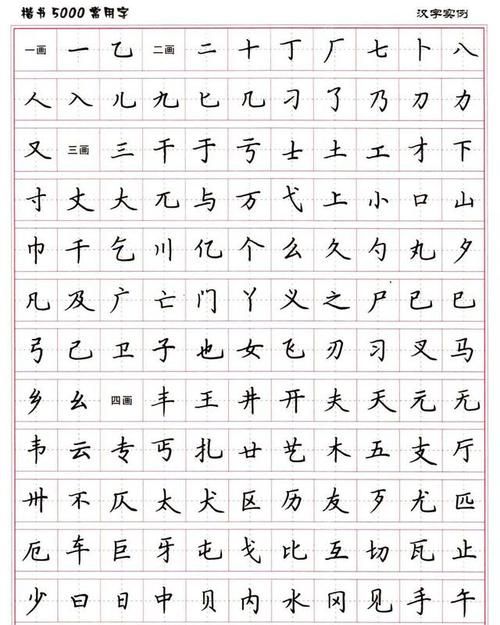 楷书5000常用字 汉字实例
一画 一 乙 二画 二 十 丁 厂 七 卜 八
人 入 儿 九 匕 几 刁 了 乃 刀 力
又 三画 三 干 于 亏 士 土 工 才 下
寸 丈 大 兀 与 万 弋 上 小 口 山
巾 千 乞 川 亿 个 么 久 勺 丸 夕
凡 及 广 亡 门 丫 义 之 尸 已 巳
弓 己 卫 子 也 女 飞 刃 习 叉 马
乡 幺 四画 丰 王 井 开 夫 天 元 无
韦 云 专 丐 扎 廿 艺 木 五 支 厅
卅 不 仄 太 犬 区 历 友 歹 尤 匹
厄 车 巨 牙 屯 戈 比 互 切 瓦 止
少 曰 日 中 贝 内 水 冈 见 手 午